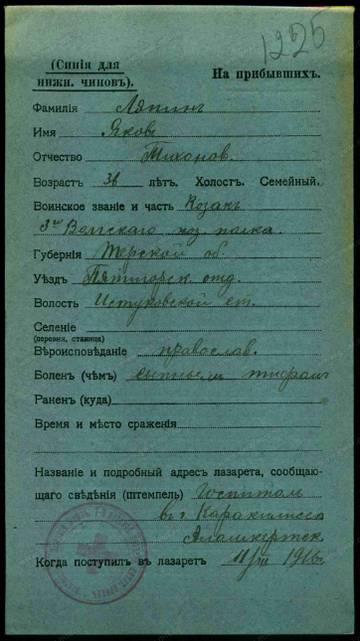 1225
(Синія для
нижн. чиновъ).
На прибывшихъ.
Фамилія Ляпинъ
Имя Яковъ
Отчество Тихонов.
Возрастъ 36 лѣтъ. Холостъ. Семейный.
Воинское званіе и часть Козакъ
3го Волгскаго коз. полка.
Губернія Терской об.
Уѣздъ Пятигорск. отд.
Волость ст.
Селеніе
(деревня, станица)
Вѣроисповѣданіе православ.
Боленъ (чѣмъ) сыпнымъ тифомъ
Раненъ (куда)
Время и мѣсто сраженія
Названіе и подробный адресъ лазарета, сообщаю-
щаго свѣдѣнія (штемпель) Госпиталь
в г. Каракилиссе
Алашкертск.
Когда поступилъ въ лазаретъ 11/III 1916 г.